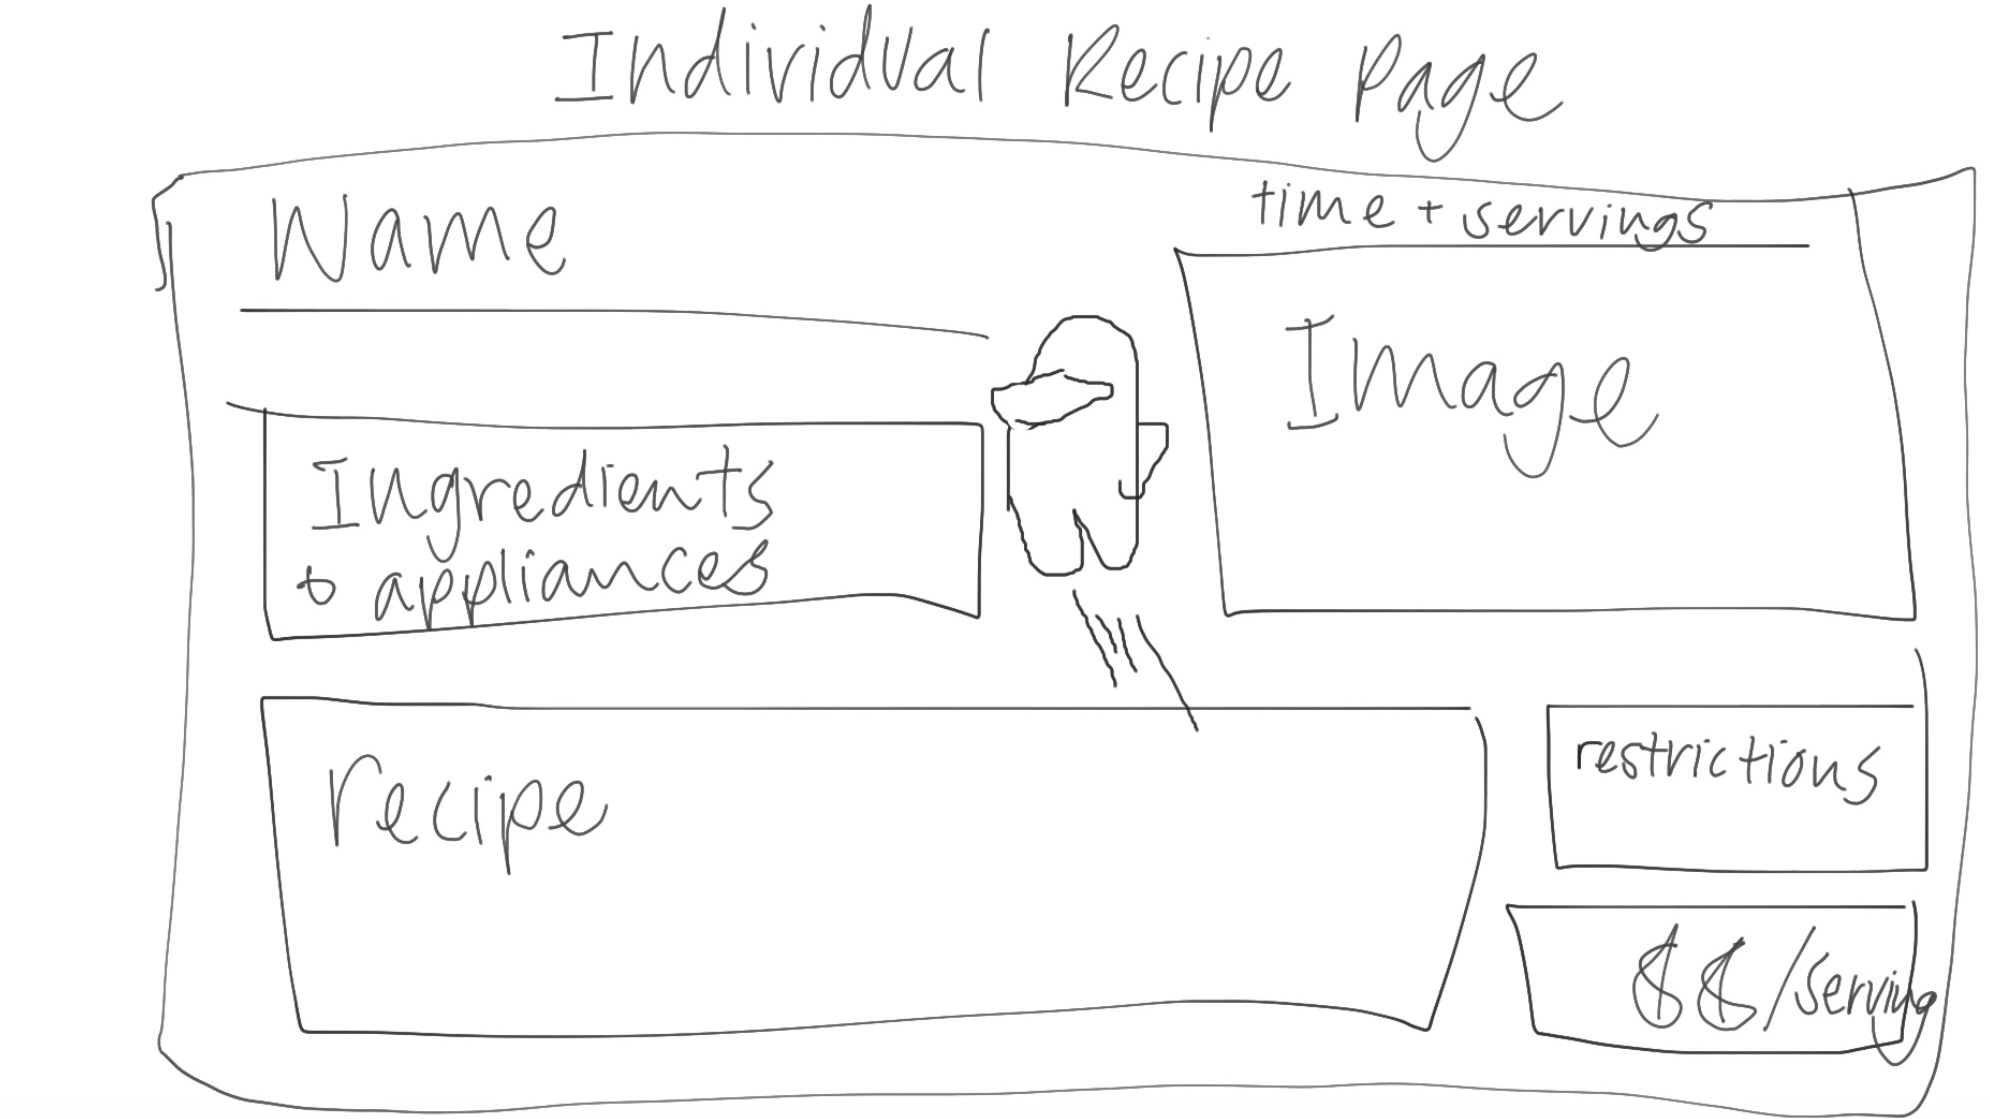 Individual Recipe Page
Name
time + servings
Image
Ingredients
+ appliances
recipe
restrictions
$$/serving